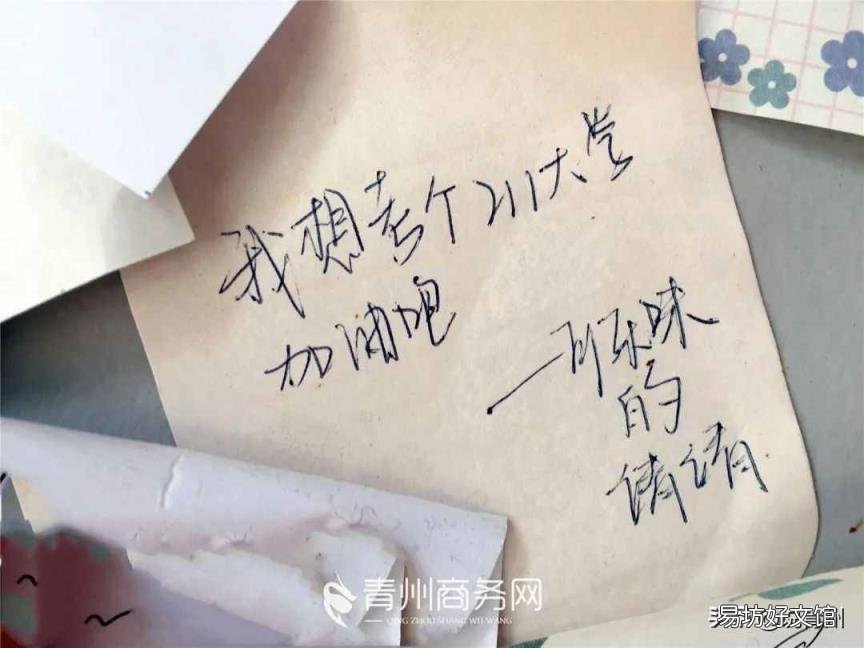 我想考个211大学
加油吧
味
的
青州商务网
QING ZHOU SHANG WU WANG
易坊好文馆